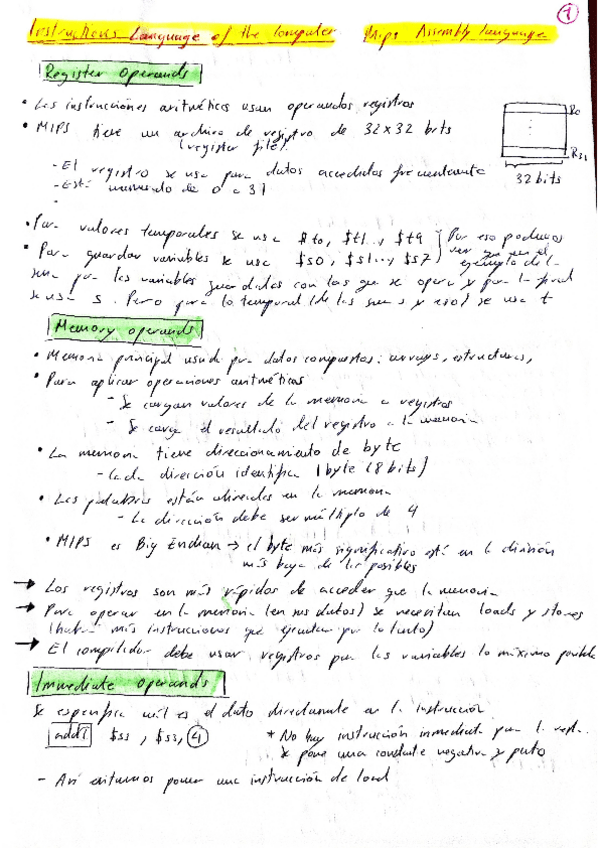 1
Instructions Language of the Computer Mips Assembly Language
Register Operands
• Las instrucciones aritméticas usan operandos registros
• MIPS tiene un archivo de registro de 32x32 bits
(register file)
R0
R31
32 bits
- El registro se usa para datos accedidos frecuentemente
- Está numerado de 0 a 31
• Para valores temporales se usa $t0, $t1..., $t9
• Para guardar variables se usa $s0, $s1..., $s7
Por eso podemos
ver que en el
ejemplo de la
suma para las variables guardadas con las que se opera y para la final
se usa s. Pero para lo temporal (de las sumas y eso) se usa t
Memory operands
• Memoria principal usada para datos compuestos: arrays, estructuras,
• Para aplicar operaciones aritméticas
- Se cargan valores de la memoria a registros
- Se carga el resultado del registro a la memoria
• La memoria tiene direccionamiento de byte
- Cada dirección identifica 1 byte (8 bits)
• Las palabras están alineadas en la memoria
- La dirección debe ser múltiplo de 4
• MIPS es Big Endian → el byte más significativo está en la
más baja de las posibles
→ Los registros son más rápidos de acceder que la memoria
→ Para operar en la memoria (en sus datos) se necesitan loads y stores
(habrá más instrucciones que ejecutar por lo tanto)
→ El compilador debe usar registros para las variables lo máximo posible
Immediate operands
Se especifica cuál es el dato directamente en la instrucción
addi $s3, $s3, 4
* No hay instrucción inmediata para la resta.
Se pone una constante negativa y punto
- Así evitamos poner una instrucción de load